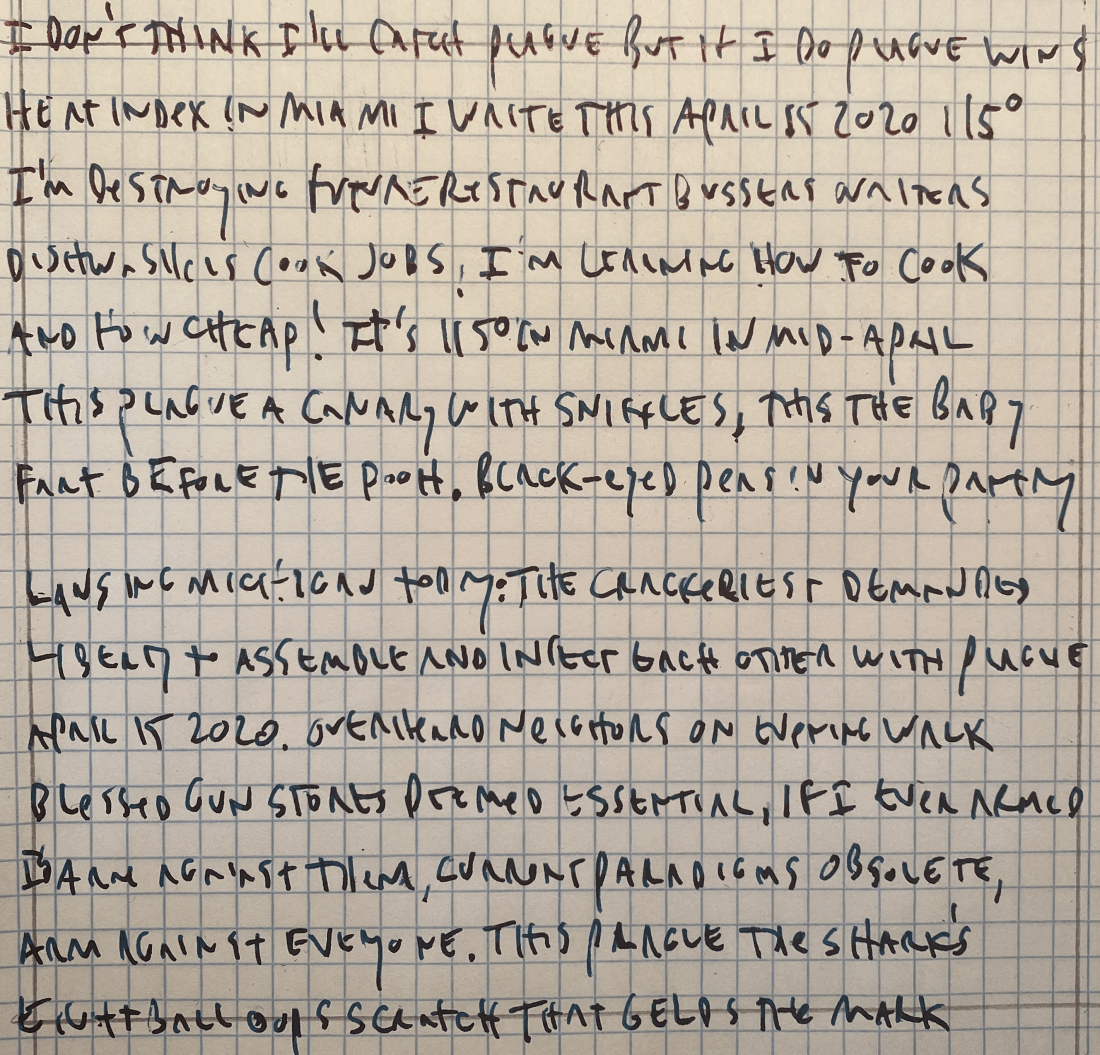 I DON'T THINK I'LL CATCH PLAGUE BUT IF I DO PLAGUE WINS
HEAT INDEX IN MIAMI I WRITE THIS APRIL 15 2020 115°
I'M DESTROYING FUTURE RESTAURANT BUSSERS WAITERS
DISHWASHERS COOK JOBS, I'M LEARNING HOW TO COOK
AND HOW CHEAP! IT'S 115° IN MIAMI IN MID-APRIL
THIS PLAGUE A CANARY WITH SNIFFLES, THIS THE BABY
FART BEFORE THE POOH. BLACK-EYED PEAS IN YOUR PANTRY
LANSING MICHIGAN TODAY: THE CRACKERIEST DEMANDED
LIBERTY TO ASSEMBLE AND INFECT EACH OTHER WITH PLAGUE
APRIL 15 2020. OVERHEARD NEIGHBORS ON EVENING WALK
BLESSED GUN STORES DEEMED ESSENTIAL, IF I EVER ARMED
I'D ARM AGAINST THEM, CURRENT PARADIGMS OBSOLETE,
ARM AGAINST EVERYONE. THIS PLAGUE THE SHARK'S
EIGHT BALL OOPS SCRATCH THAT GELDS THE MARK